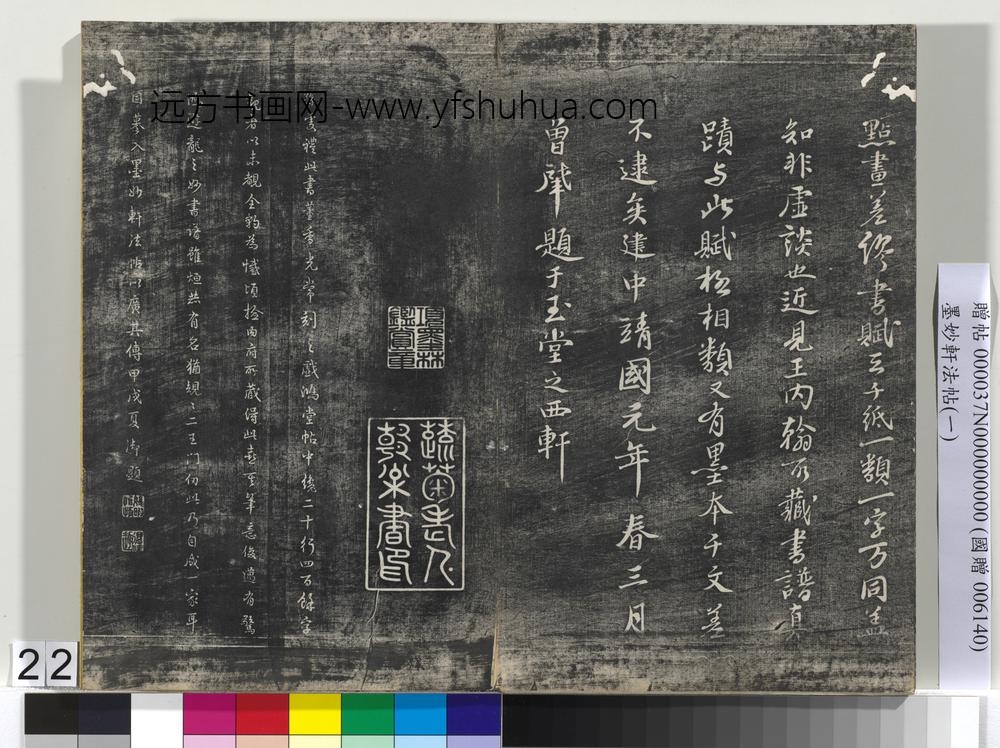 點畫若繆書賦云千紙一類一字万同盖
知非虛談也近見王内翰所藏書譜真
蹟与此賦極相類又有墨本千文差
不逮矣建中靖國元年春三月
曾肈題于玉堂之西軒
項墨林
鑑賞章
蔬菊老人
書印
禮此書董香光常刻之戲鴻堂帖中後二十行四百餘字
觀者以未覩全豹為憾頃撿内府所藏得此卷筆意俊邁有驚
龍之妙書譜雖烜赫有名猶規之二王門仞此乃自成一家耳
摹入墨妙軒法帖以廣其傳甲戌夏御題
远方书画网-www.yfshuhua.com
贈帖 000037N000000000 (國贈 006140)
墨妙軒法帖(一)
22